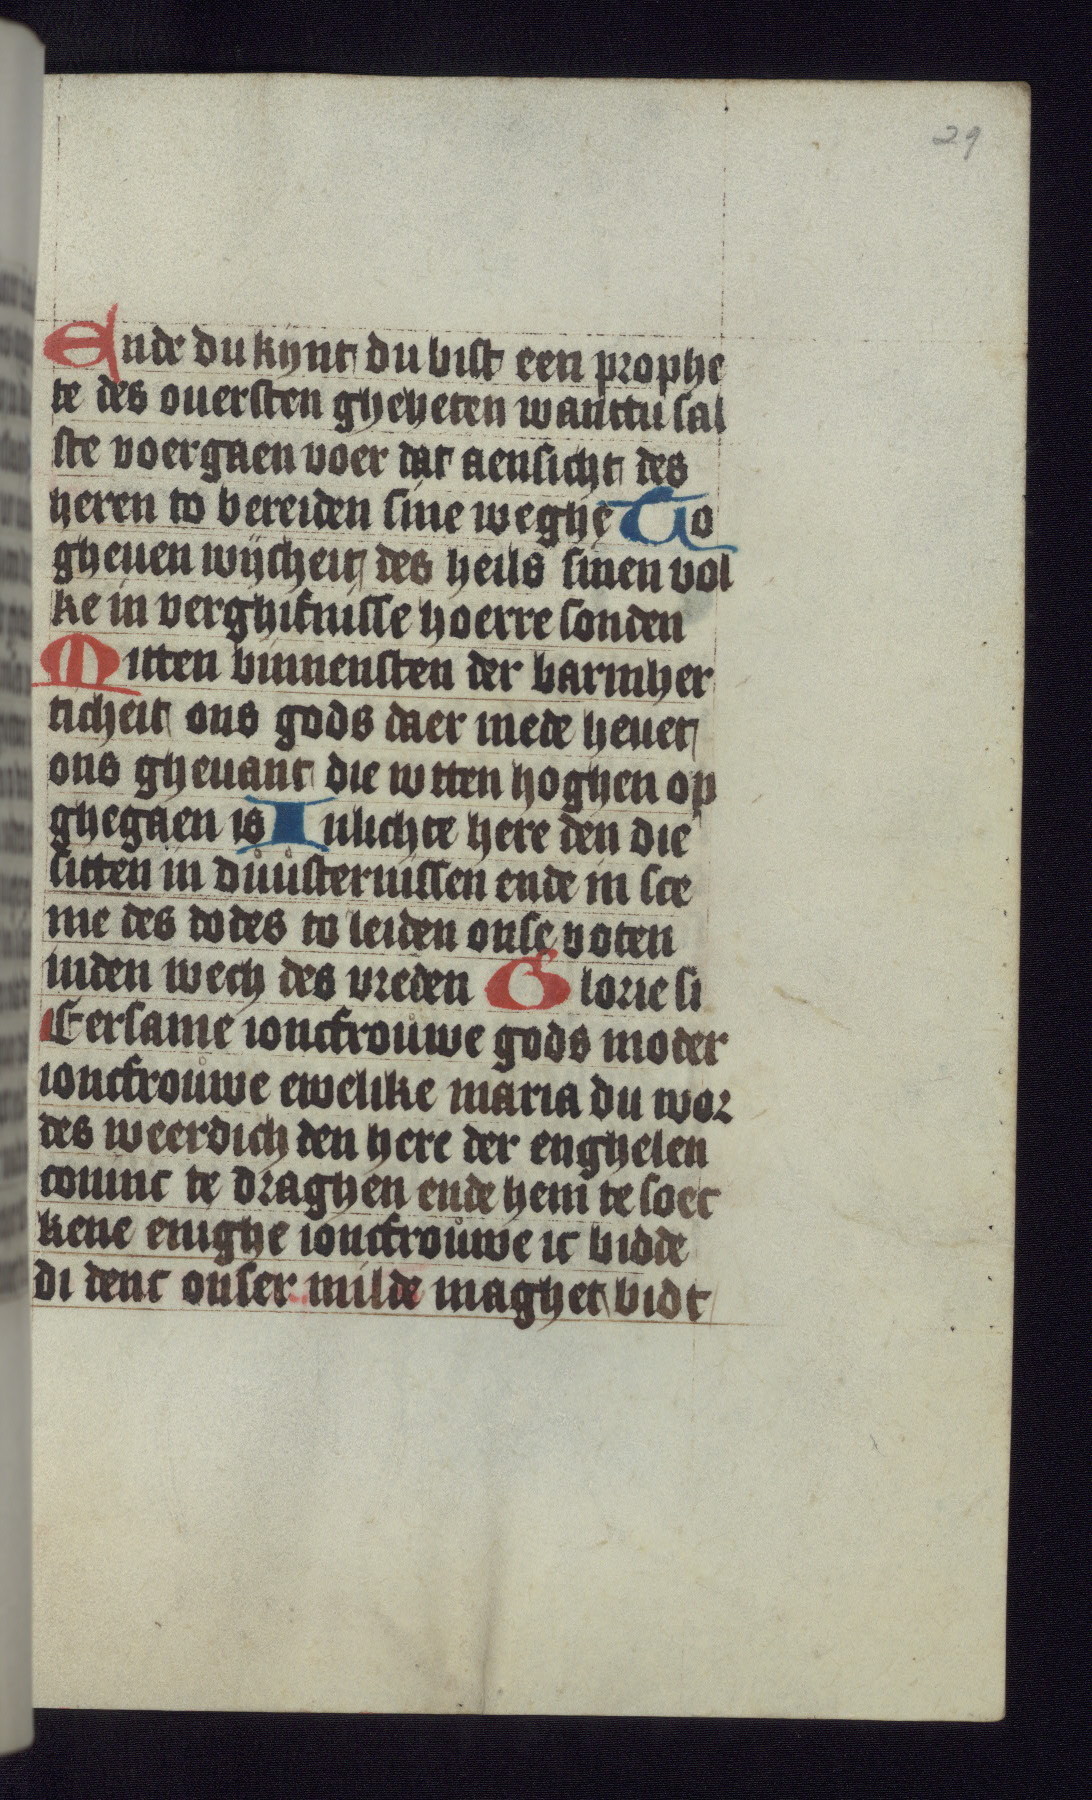 29
Ende du kijnt du bist een prophe
te des ouersten gheheten wanttu sal
ste voergaen voer dat aensicht des
heren to bereiden sine weghe To
gheuen wijcheit des heils sinen vol
ke in verghifnisse hoerre sonden
Mitten binnensten der barmher
ticheit ons gods daer mede heuet
ons gheuant die wtten hoghen op
ghegaen is Inlichte here den die
sitten in duůsternissen ende in sce
me des dodes to leiden onse voten
inden wech des vreden Glorie si
Eersame ioncfrouwe gods moder
ioncfroůwe ewelike maria du wor
des weerdich den here der enghelen
coninc te draghen ende hem te soec
kene enighe ioncfroůwe ic bidde
di denc onser milde maghet bidt